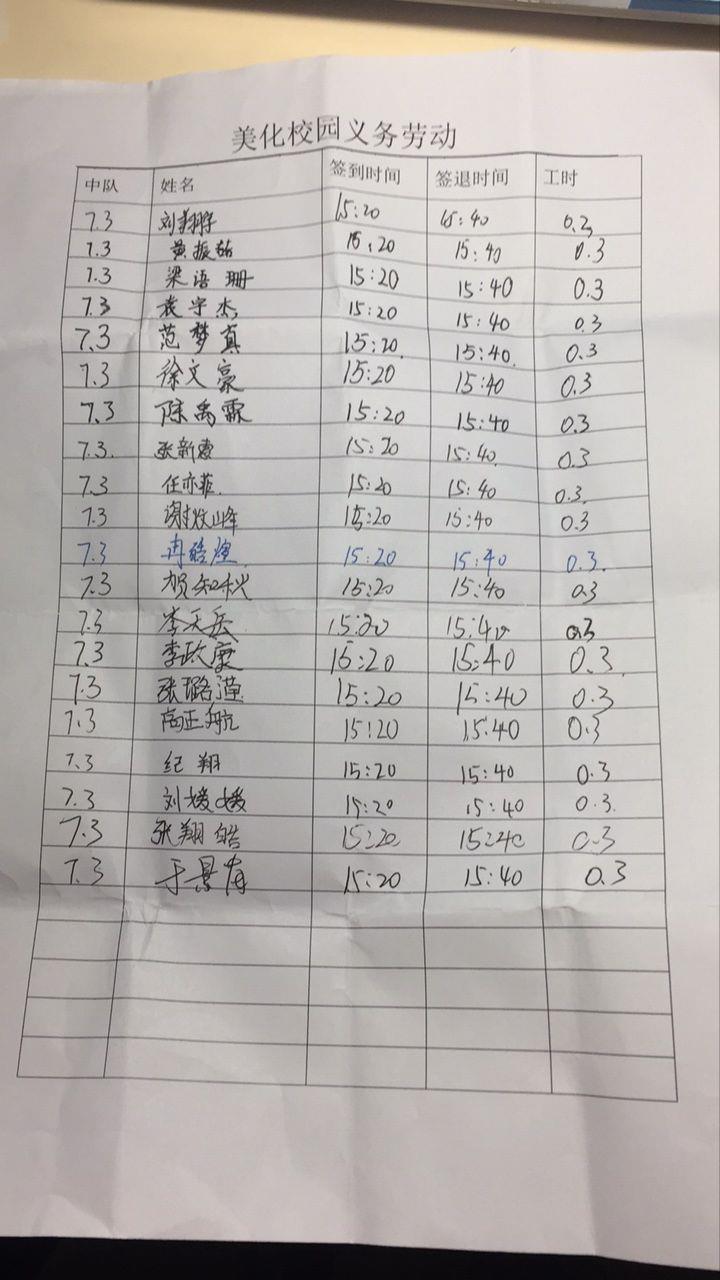 美化校园义务劳动
中队 姓名 签到时间 签退时间 工时
7.3 15:20 15:40 0.3
7.3 黄振 15:20 15:40 0.3
7.3 梁语珊 15:20 15:40 0.3
7.3 袁宇杰 15:20 15:40 0.3
7.3 范梦真 15:20. 15:40. 0.3
7.3 徐文豪 15:20 15:40 0.3
7.3 陈禹霖 15:20 15:40 0.3
7.3. 张新惠 15:20 15:40. 0.3
7.3 任亦菲. 15:20 15:40 0.3.
7.3 15:20 15:40 0.3
7.3 冉皓煌 15:20 15:40 0.3.
7.3 贺知秋 15:20 15:40 0.3
7.3 李天岳 15:20 15:40 0.3
7.3 李政康 15:20 15:40 0.3.
7.3 张璐滢 15:20 15:40 0.3
7.3 高正航 15:20 15:40 0.3
7.3 纪翔 15:20 15:40 0.3
7.3 刘媛媛 15:20 15:40 0.3.
7.3 张翔皓 15:20 15:40 0.3
7.3 于景有 15:20 15:40 0.3